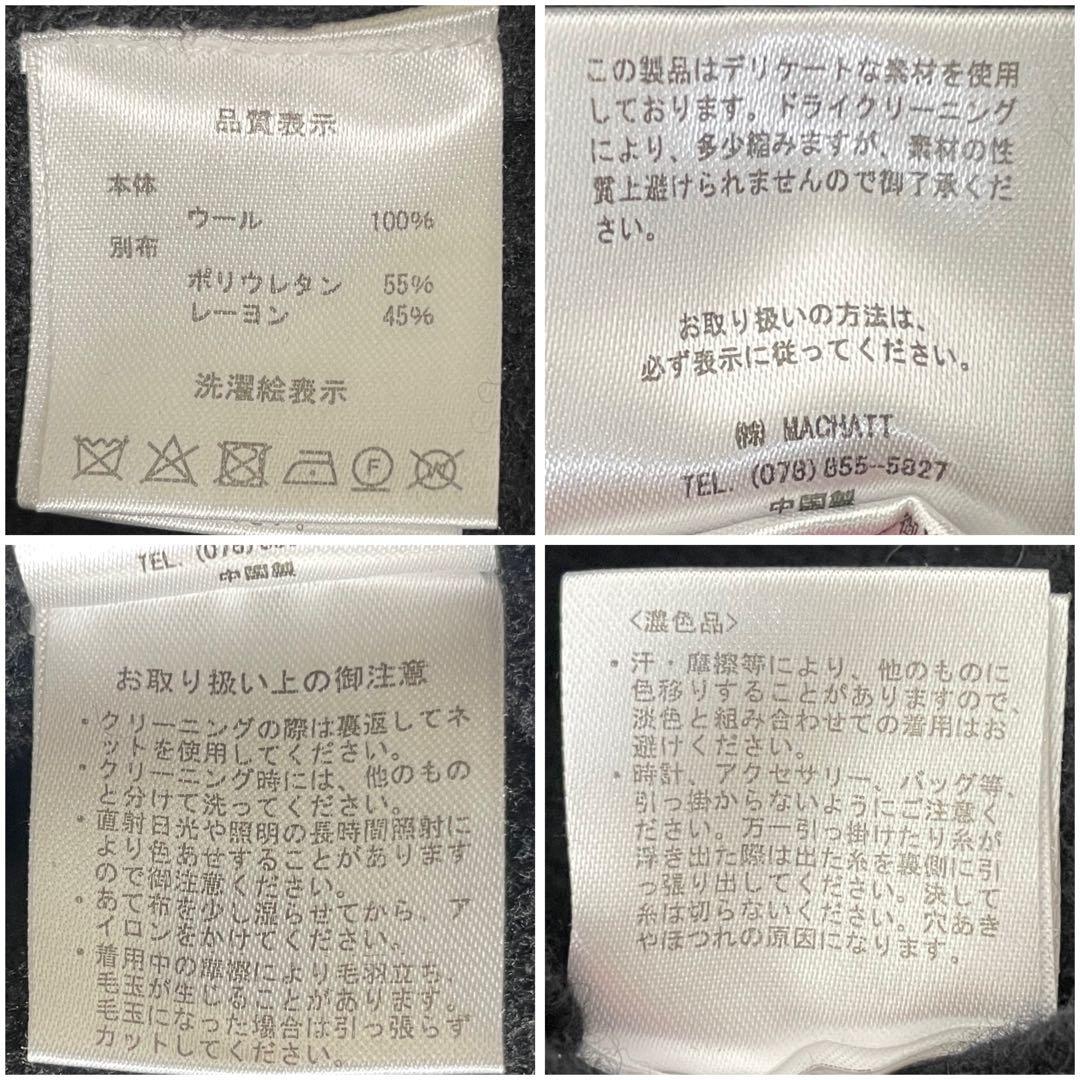 品質表示
本体
ウール 100%
別布
ポリウレタン 55%
レーヨン 45%
洗濯絵表示
F
W
この製品はデリケートな素材を使用
しております。ドライクリーニング
により、多少縮みますが、素材の性
質上避けられませんので御了承くだ
さい。
お取り扱いの方法は、
必ず表示に従ってください。
㈱ MACHATT
TEL. (078) 855-5827
中国製
TEL. (078)
中国製
お取り扱い上の御注意
・クリーニングの際は裏返してネ
ットを使用してください。
・クリーニング時には、他のもの
と分けて洗ってください。
・直射日光や照明の長時間照射に
より色あせすることがあります
ので御注意ください。
・あて布を少し湿らせてから、ア
イロンをかけてください。
・着用中の摩擦により毛羽立ち、
毛玉が生じることがあります。
毛玉になった場合は引っ張らず
カットしてください。
<濃色品>
・汗・摩擦等により、他のものに
色移りすることがありますので、
淡色と組み合わせての着用はお
避けください。
・時計、アクセサリー、バッグ等、
引っ掛からないようにご注意く
ださい。万一引っ掛けたり糸が
浮き出た際は出た糸を裏側に引
っ張り出してください。決して
糸は切らないください。穴あき
やほつれの原因になります。